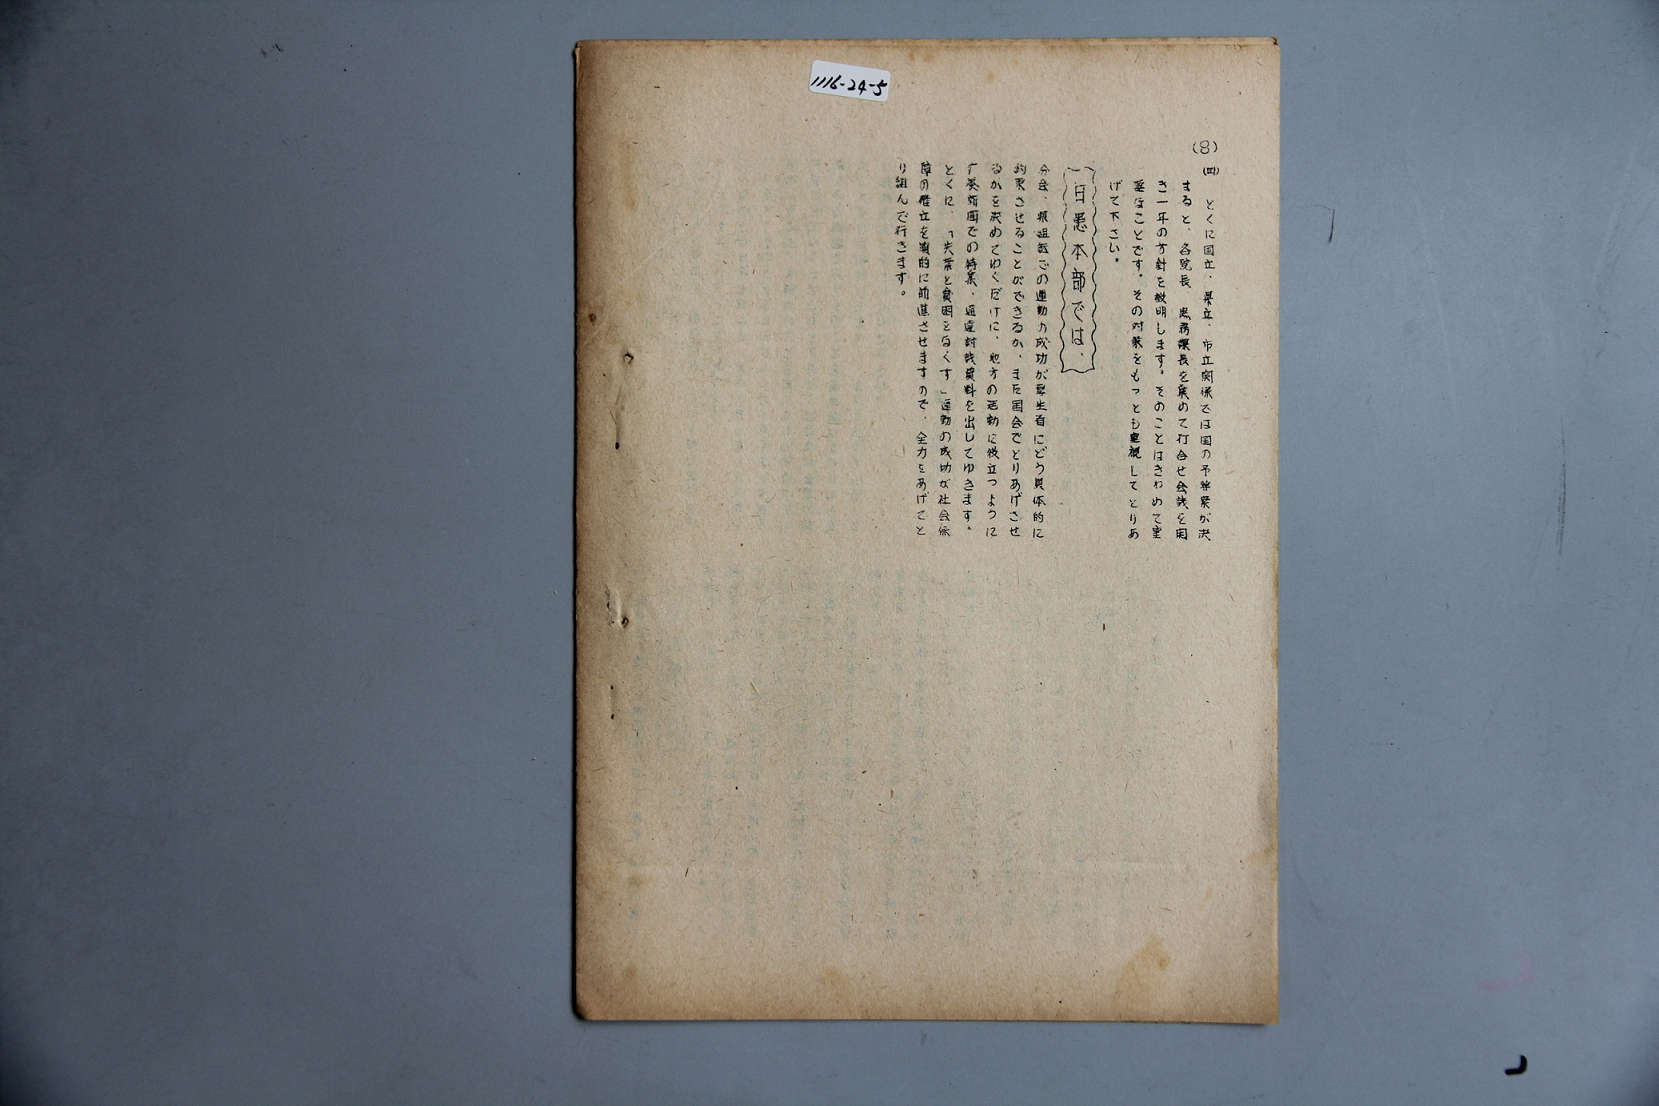 1116-24-5
(8)
(四) とくに国立、県立、市立関係では国の予算案が決
まると、各院長 庶務課長を集めて打合せ会議を開
き一年の方針を説明します。そのことはきわめて重
要なことです。その対策をもっとも重視してとりあ
げて下さい。
日患本部では、
分会、県組織での運動の成功が厚生省にどう具体的に
約束させることができるか、また国会でとりあげさせ
るかを決めてゆくだけに、地方の活動に役立つように
療養新聞での特集、通達討議資料を出してゆきます。
とくに、「失業と貧困をなくす」運動の成功が社会保
障の確立を 的に前進させますので、全力をあげてと
り組んで行きます。